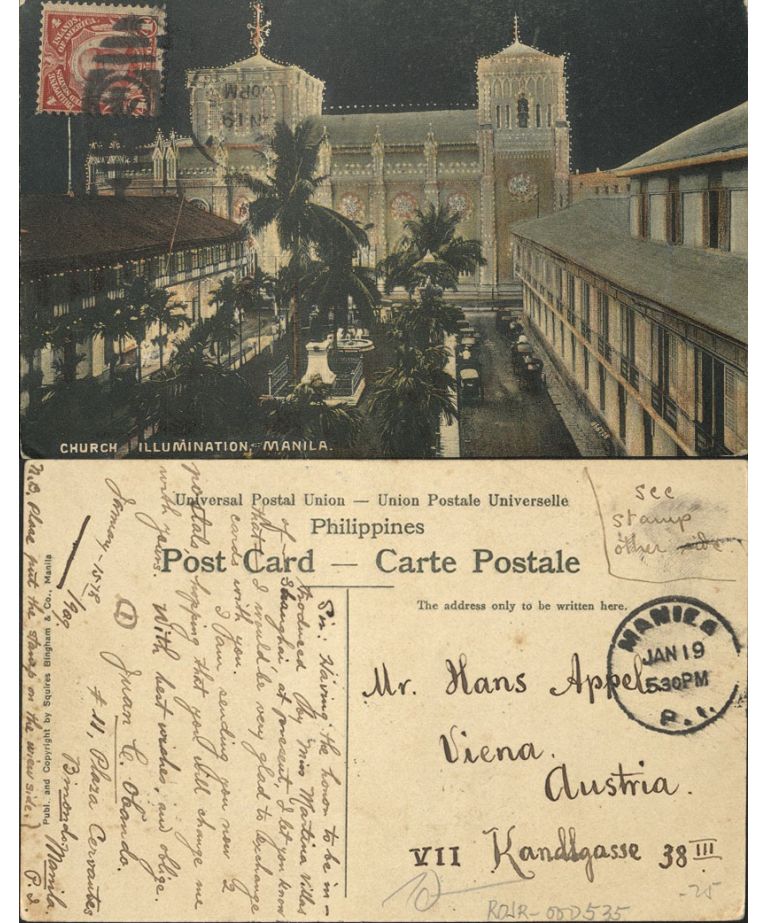 PHILIPPINE
ISLANDS
UNITED STATES
OF AMERICA
JAN 19
5.30PM
CHURCH ILLUMINATION, MANILA.
see
stamp
other side
Universal Postal Union — Union Postale Universelle
Philippines
Post Card — Carte Postale
The address only to be written here.
MANILA
JAN 19
5.30PM
P.I.
Mr. Hans Appel
Viena.
Austria.
VII Kandlgasse 38 III
ROJR-00D535
-25
Sir: Having the honor to be in-
troduced by Miss Martina Villas
of Shanghai, at present, I let you know
that I would be very glad to exchange
cards with you.
I am sending you now 2
postals hopping that you will change me
with yours. With best wishes, and oblige.
January. 15th
1909
Juan C. Obando.
# 11, Plaza Cervantes
Binondo, Manila.
P.I.
Publ. and Copyright by Squires Bingham & Co., Manila
N.B. please put the stamp on the view side.